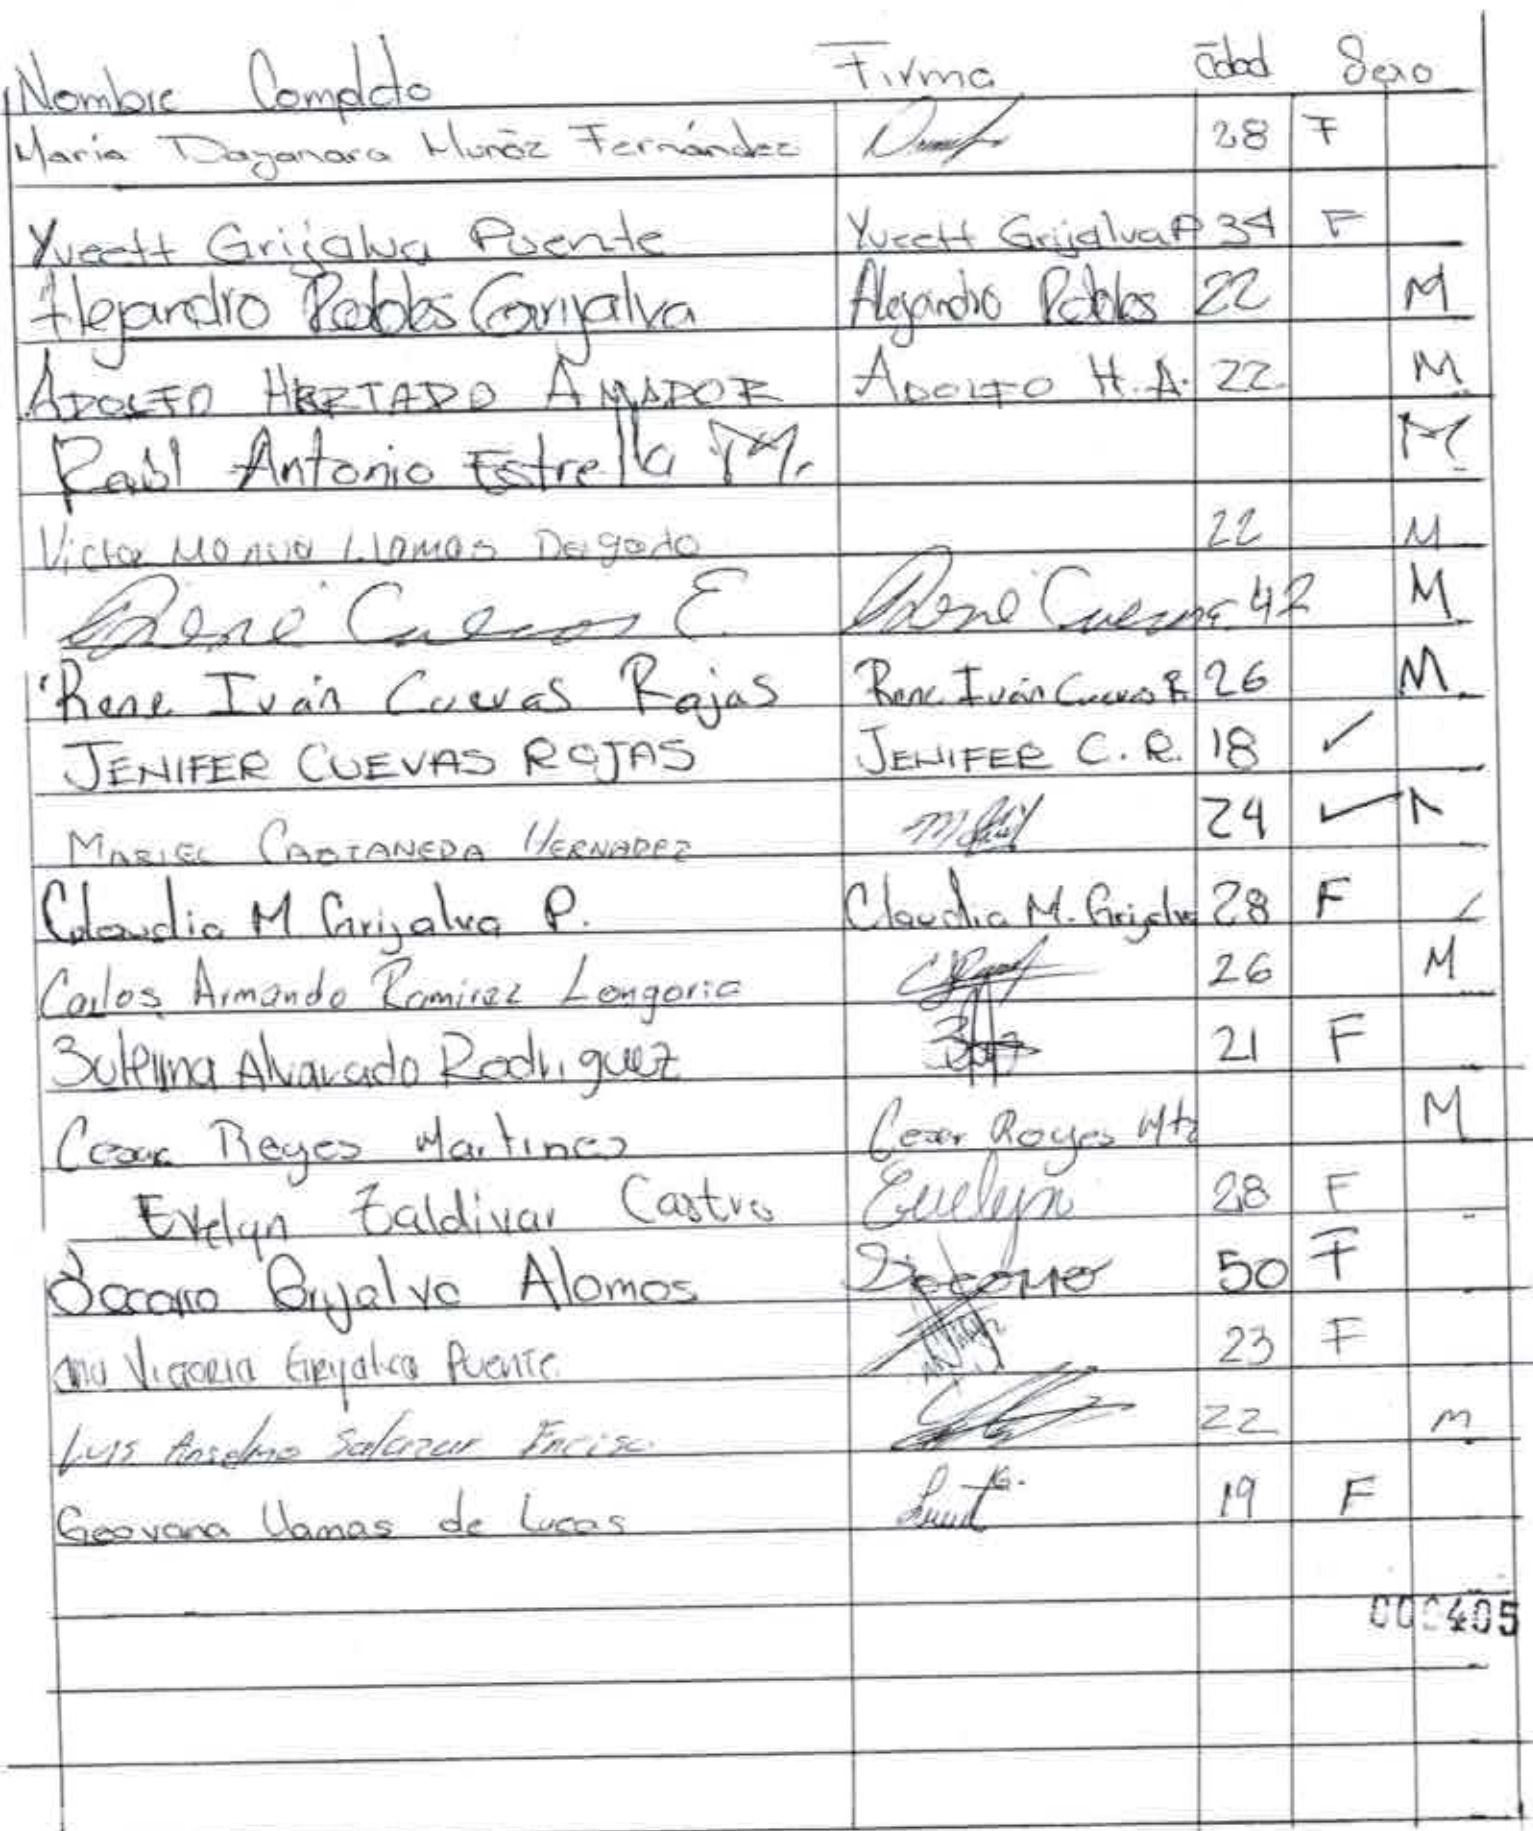 Nombre Completo Firma Edad Sexo
María Dayanara Muñoz Fernández 28 F
Yveett Grijalva Puente Yveett Grijalva P 34 F
Alejandro Robles Grijalva Alejandro Robles 22 M
ADOLFO HURTADO AMADOR ADOLFO H.A. 22 M
Raúl Antonio Estrella M. M
Victor Llamas Delgado 22 M
René Cuevas E. René Cuevas 42 M
Rene Iván Cuevas Rojas Rene Iván Cuevas R. 26 M
JENIFER CUEVAS ROJAS JENIFER C. R. 18 ✓
MARIEL CASTANEDA HERNADEZ 24 ✓
Claudia M Grijalva P. Claudia M. Grijalva 28 F
Carlos Armando Ramirez Longoria 26 M
Alvarado Rodriguez 21 F
Cesar Reyes Martinez Cesar Reyes Mtz M
Evelyn Zaldivar Castro Evelyn 28 F
Socorro Grijalva Alamos Socorro 50 F
Ana Victoria Grijalva Puente 23 F
Luis Anselmo Salazar Enciso 22 m
Geovana Llamas de Lucas 19 F
000405